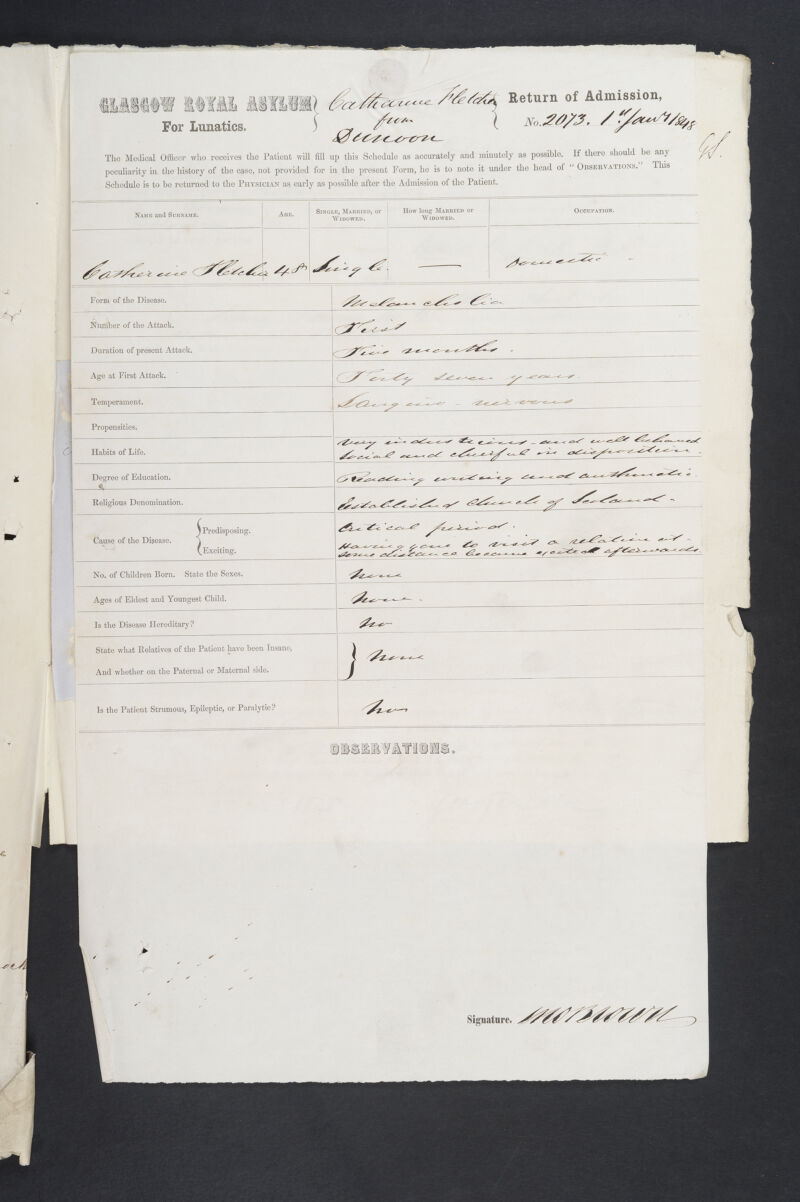 GLASGOW ROYAL ASYLUM
For Lunatics.
Catharine Fletcher
from
Dunoon
Return of Admission,
No. 2073. 1st Jany 1848
GS.
The Medical Officer who receives the Patient will fill up this Schedule as accurately and minutely as possible. If there should be any
peculiarity in the history of the case, not provided for in the present Form, he is to note it under the head of "OBSERVATIONS." This
Schedule is to be returned to the PHYSICIAN as early as possible after the Admission of the Patient.
NAME and SURNAME. AGE. SINGLE, MARRIED, or WIDOWED. How long MARRIED or WIDOWED. OCCUPATION.
Catherine Fletcher 48 Single. — Domestic
Form of the Disease. Melancholia
Number of the Attack. First
Duration of present Attack. Five months.
Age at First Attack. Forty seven years
Temperament. Sanguine - nervous
Propensities.
Habits of Life. Very industrious - and well behaved
Social and cheerful in disposition.
Degree of Education. Reading writing and arithmetic.
Religious Denomination. Established Church of Scotland -
Cause of the Disease. { Predisposing. Critical period.
{ Exciting. Having gone to visit a relation at -
some distance became excited afterwards
No. of Children Born. State the Sexes. None
Ages of Eldest and Youngest Child. None.
Is the Disease Hereditary? No
State what Relatives of the Patient have been Insane, } None
And whether on the Paternal or Maternal side.
Is the Patient Strumous, Epileptic, or Paralytic? No
OBSERVATIONS.
Signature. Brown